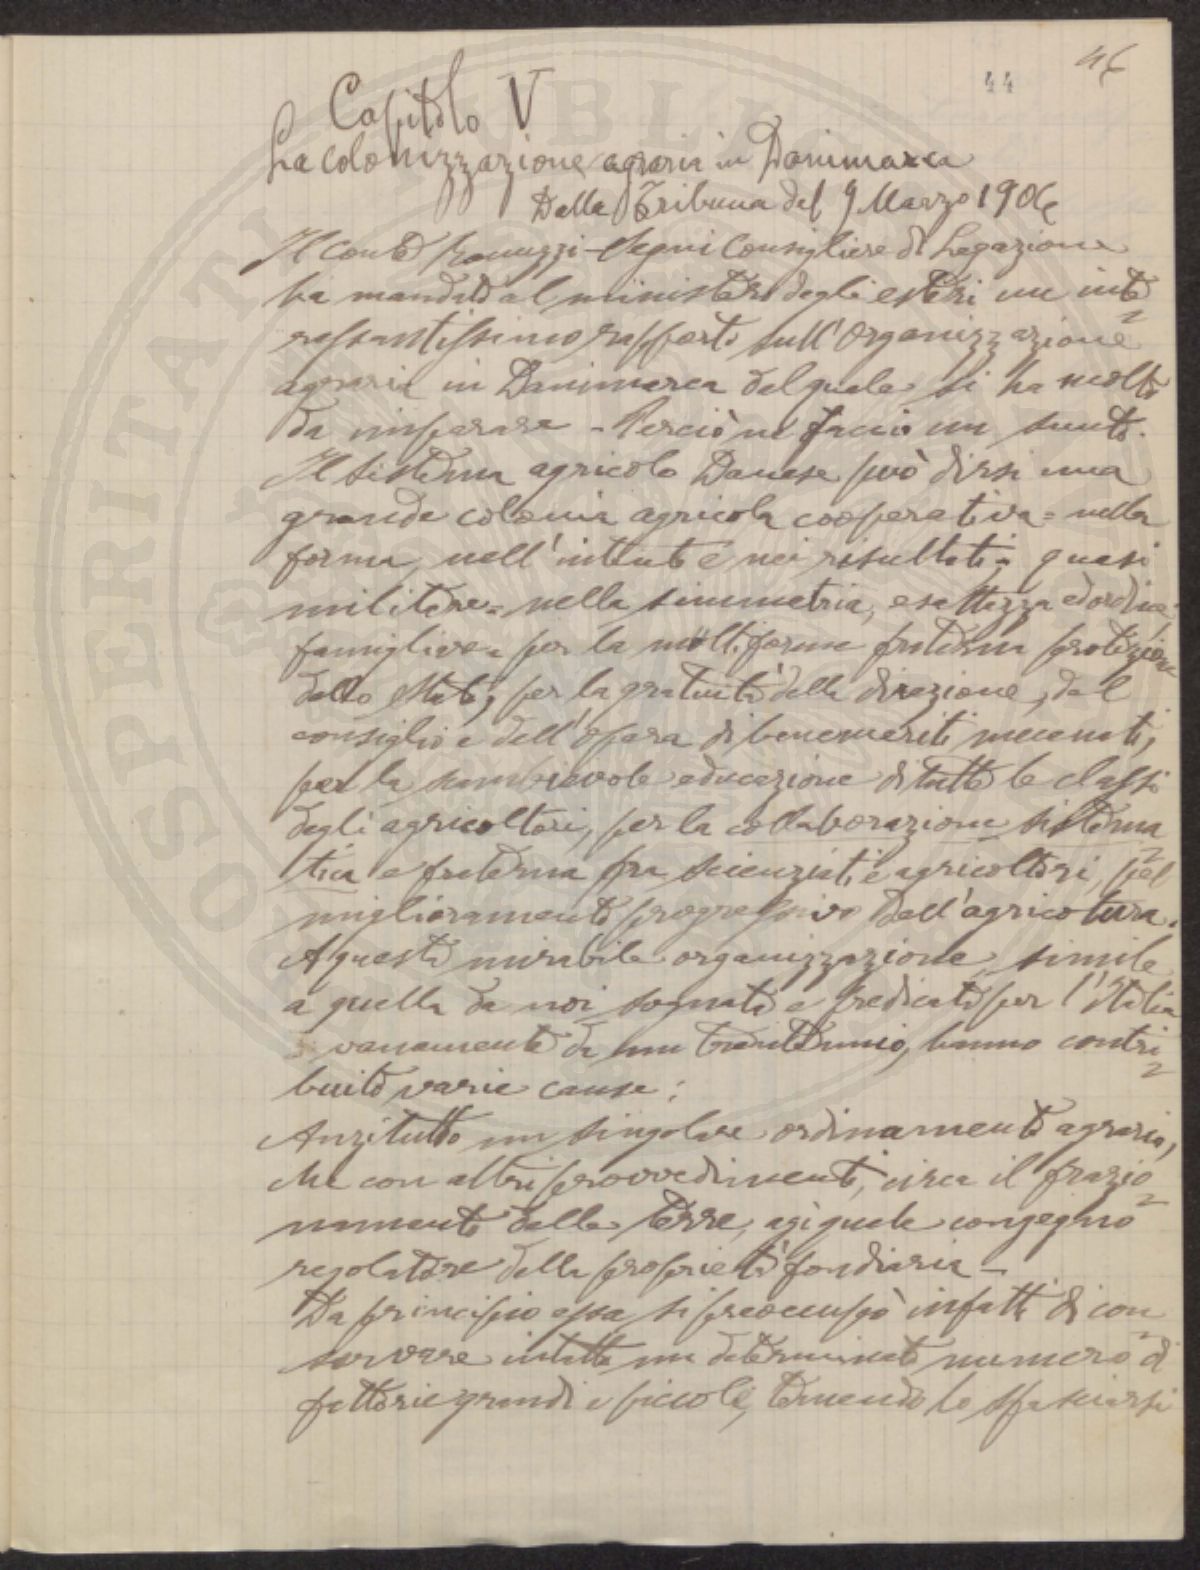 44
46
Capitolo V
La colonizzazione agraria in Danimarca
Dalla Tribuna del 9 Marzo 1906
Il conte Ranuzzi-Segni Consigliere di Legazione
ha mandato al ministero degli esteri un inte
ressantissimo rapporto sull'Organizzazione
agraria in Danimarca dal quale si ha molto
da imparare - Perciò ne faccio un sunto.
Il sistema agricolo Danese può dirsi una
grande colonia agricola cooperativa = nella
forma, nell'intento e nei risultati; quasi
militare = nella simmetria, esattezza ed ordine;
famigliare = per la moltiforme fraterna protezione
dello Stato; per la gratuità della direzione, del
consiglio e dell'opera di benemeriti mecenati;
per la scambievole educazione di tutte le classi
degli agricoltori, per la collaborazione sistema
tica e fraterna fra scienziati e agricoltori, pel
miglioramento progressivo dell'agricoltura.
A questa mirabile organizzazione, simile
a quella da noi sognata e predicata per l'Italia
vanamente da un trentennio, hanno contri
buito varie cause:
Anzitutto un singolare ordinamento agrario,
che con altri provvedimenti, circa il frazio
namento delle terre, agì quale congegno
regolatore della proprietà fondiaria -
Da principio essa si preoccupò infatti di con
servare intatto un determinato numero di
fattorie grandi e piccole, temendo lo sfasciarsi
OSPERITATI PUBLIC